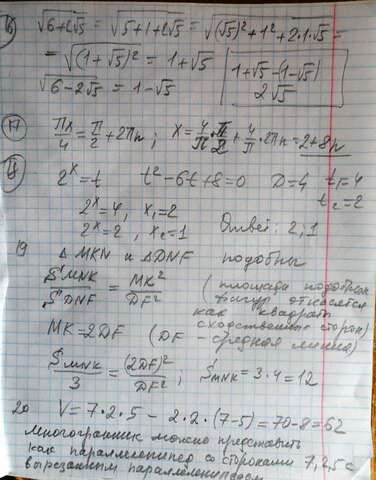 16) √6+2√5 = √5+1+2√5 = √(√5)²+1²+2·1·√5 =
= √(1+√5)² = 1+√5 | 1+√5-(1-√5)
√6-2√5 = 1-√5 | 2√5
17) πx/4 = π/2 + 2πn ; x = 4/π · π/2 + 4/π · 2πn = 2+8n
18 2ˣ=t t²-6t+8=0 D=4 t₁=4
t₂=2
2ˣ=4, x₁=2
2ˣ=2, x₂=1 Ответ: 2,1
19 △ MKN и △DNF подобны
S MNK / S DNF = MK² / DF² (площади подобных
фигур относятся
как квадраты
сходственных сторон)
MK=2DF (DF – средняя линия)
S MNK / 3 = (2DF)² / DF² ; S MNK = 3·4=12
20 V= 7·2·5 - 2·2·(7-5)=70-8=62
Многогранник можно представить
как параллелепипед со сторонами 7,2,5 с
вырезанным параллелепипедом